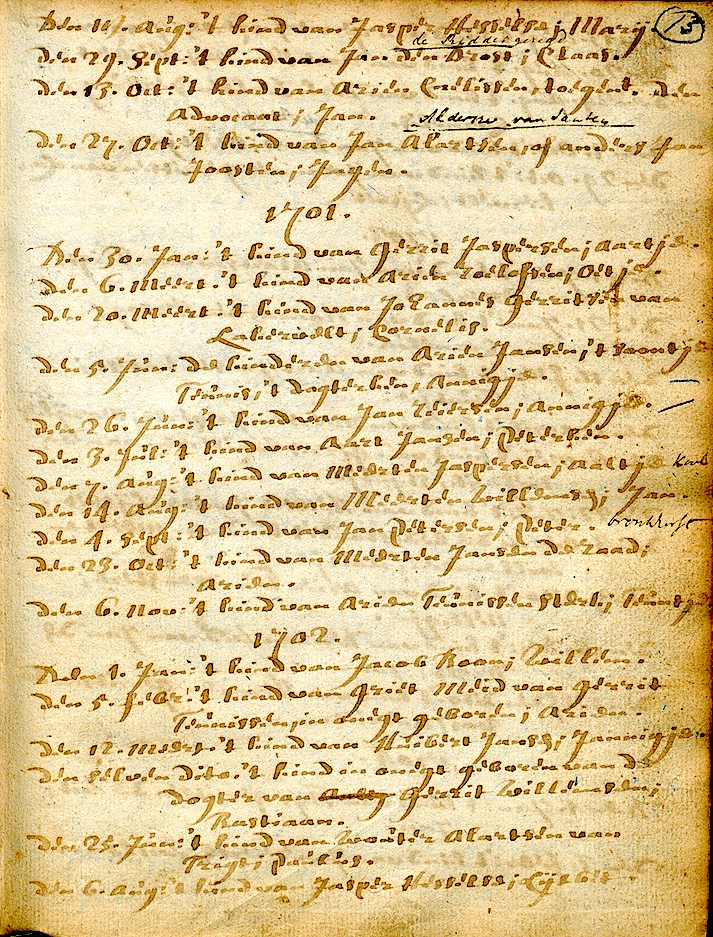 Den 11. Aug: 't kind van Jasper Hesselse; Marij. 15
de Ridder
den 29. Sept: 't kind van Jan den Drost; Claas.
den 13. Oct: 't kind van Arien Cnelissen, toegent. den
Advocaat; Jan. van Santen
den 27. Oct: 't kind van Jan Alartsen, of anders Jan
Joosten; Jngen.
1701.
Den 30. Jan: 't kind van Gerrit Jaspersen; Aartje.
den 6. Meert: 't kind van Arien Roelofsen; Oetje.
den 20. Meert: 't kind van Johannes Gerritsen van
Lakerveld; Cornelis.
den 5. Jun: de kinderen van Arien Jansen; 't soontje
Teunis; 't dogterken, Annigje.
den 26. Jun: 't kind van Jan Reiersen; Annigje.
den 3. Jul: 't kind van Aart Jansen; Peterken.
den 7. Aug: 't kind van Meerten Jaspersen; Aaltje
den 14. Aug: 't kind van Meerten Willemsz; Jan.
den 4. Sept: 't kind van Jan Petersen; Peter. bronkhorst
den 23. Oct: 't kind van Meerten Jansen de Raad;
Arien.
den 6. Nov: 't kind van Arien Teunissen Sterk; Teuntje
1702.
Den 1. Jan: 't kind van Jacob Koon; Willem.
den 5. Febr: 't kind van Griet Meid van Gerrit
Teunissen, in onegt geboren; Arien.
den 12. Meert: 't kind van Huibert Jansz; Jannigje.
den selven dito: 't kind in onegt geboren van de
dogter van Gerrit Willemsen;
Bastiaan.
den 25. Jun: 't kind van Wouter Alartsen van
Trigt; Paulus.
den 6. Aug: 't kind van Jasper Hesselse; Cijtbet.